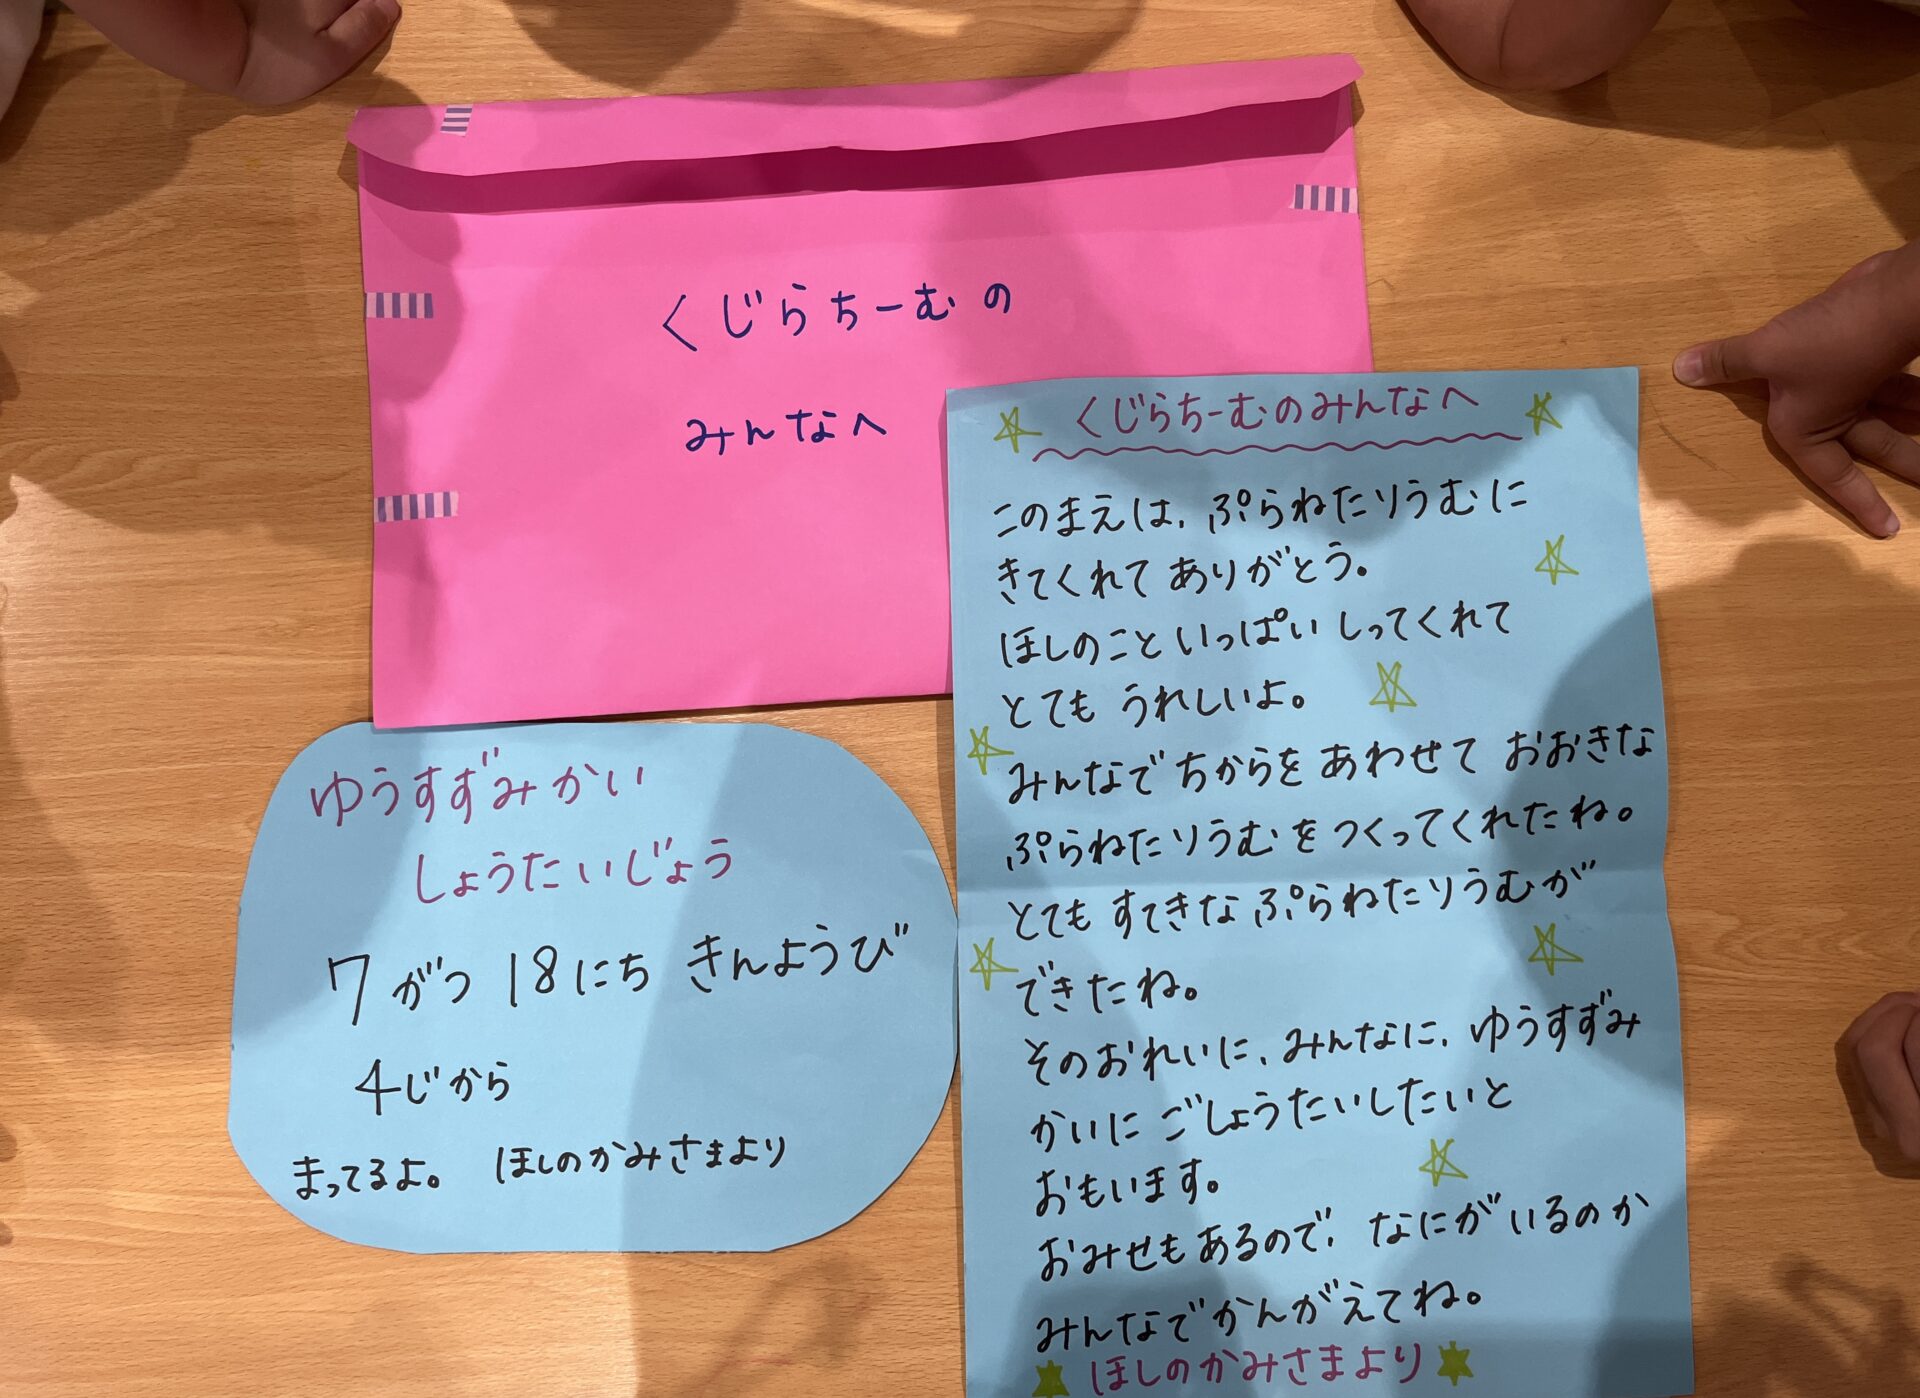 くじらちーむの
みんなへ
くじらちーむのみんなへ
このまえは、ぷらねたりうむに
きてくれて ありがとう。
ほしのこと いっぱい しってくれて
とても うれしいよ。
みんなで ちからを あわせて おおきな
ぷらねたりうむを つくってくれたね。
とても すてきな ぷらねたりうむが
できたね。
そのおれいに、みんなに、ゆうすずみ
かいに ごしょうたいしたいと
おもいます。
おみせも あるので、なにが いるのか
みんなで かんがえてね。
ほしのかみさまより
ゆうすずみかい
しょうたいじょう
7がつ 18にち きんようび
4じから
まってるよ。 ほしのかみさまより